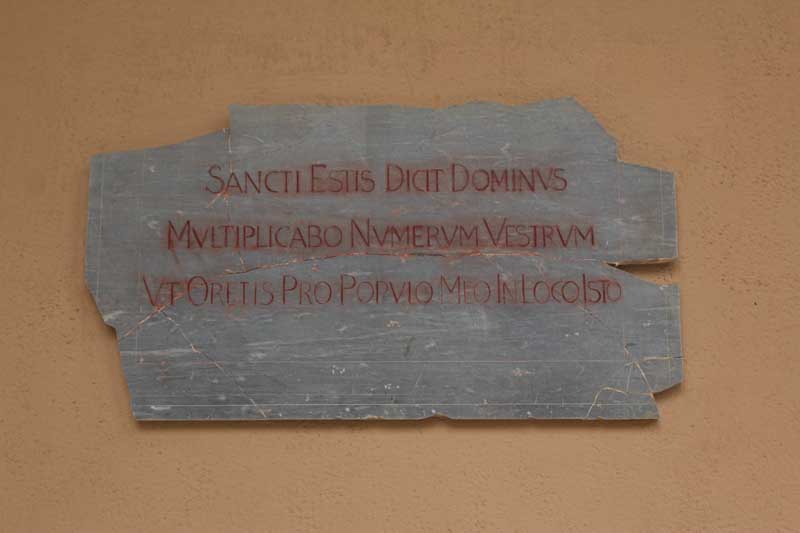 SANCTI ESTIS DICIT DOMINVS
MVLTIPLICABO NVMERVM VESTRVM
VT ORETIS PRO POPVLO MEO IN LOCO ISTO